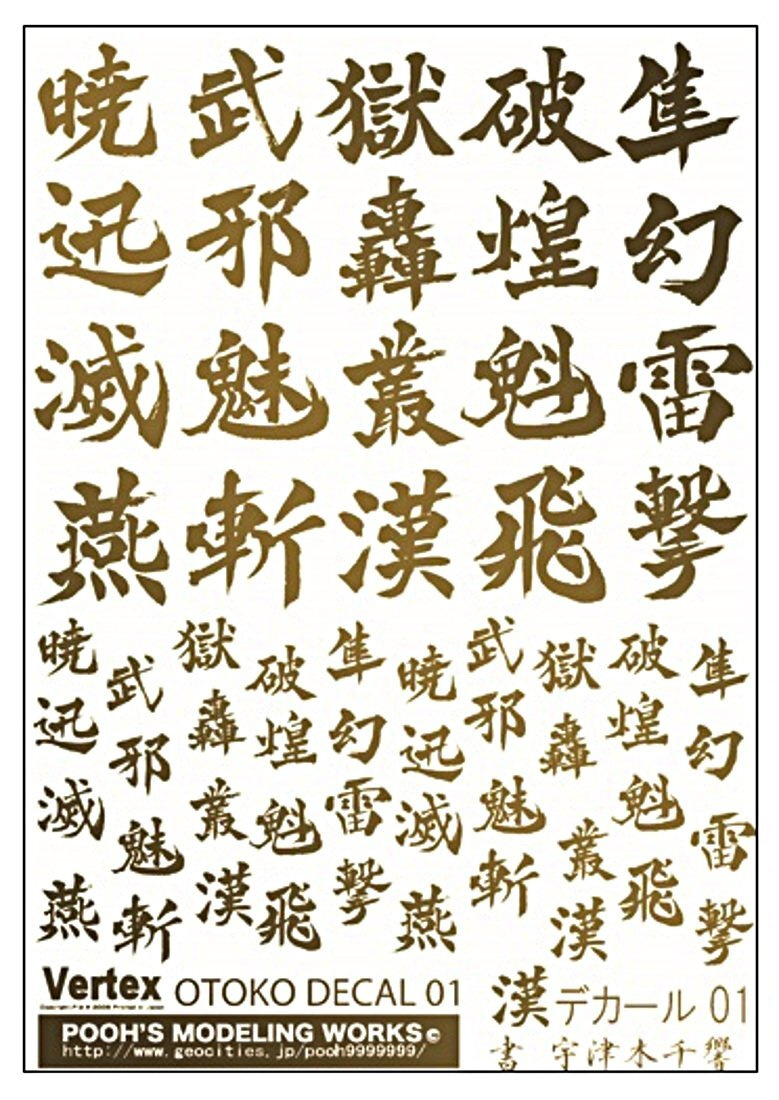 暁 武 獄 破 隼
迅 邪 轟 煌 幻
滅 魅 叢 魁 雷
燕 斬 漢 飛 撃
暁 武 獄 破 隼 暁 武 獄 破 隼
迅 邪 轟 煌 幻 迅 邪 轟 煌 幻
滅 魅 叢 魁 雷 滅 魅 叢 魁 雷
燕 斬 漢 飛 撃 燕 斬 漢 飛 撃
Vertex OTOKO DECAL 01
漢デカール 01
POOH'S MODELING WORKS©
http://www.geocities.jp/pooh9999999/
書 宇津木千響